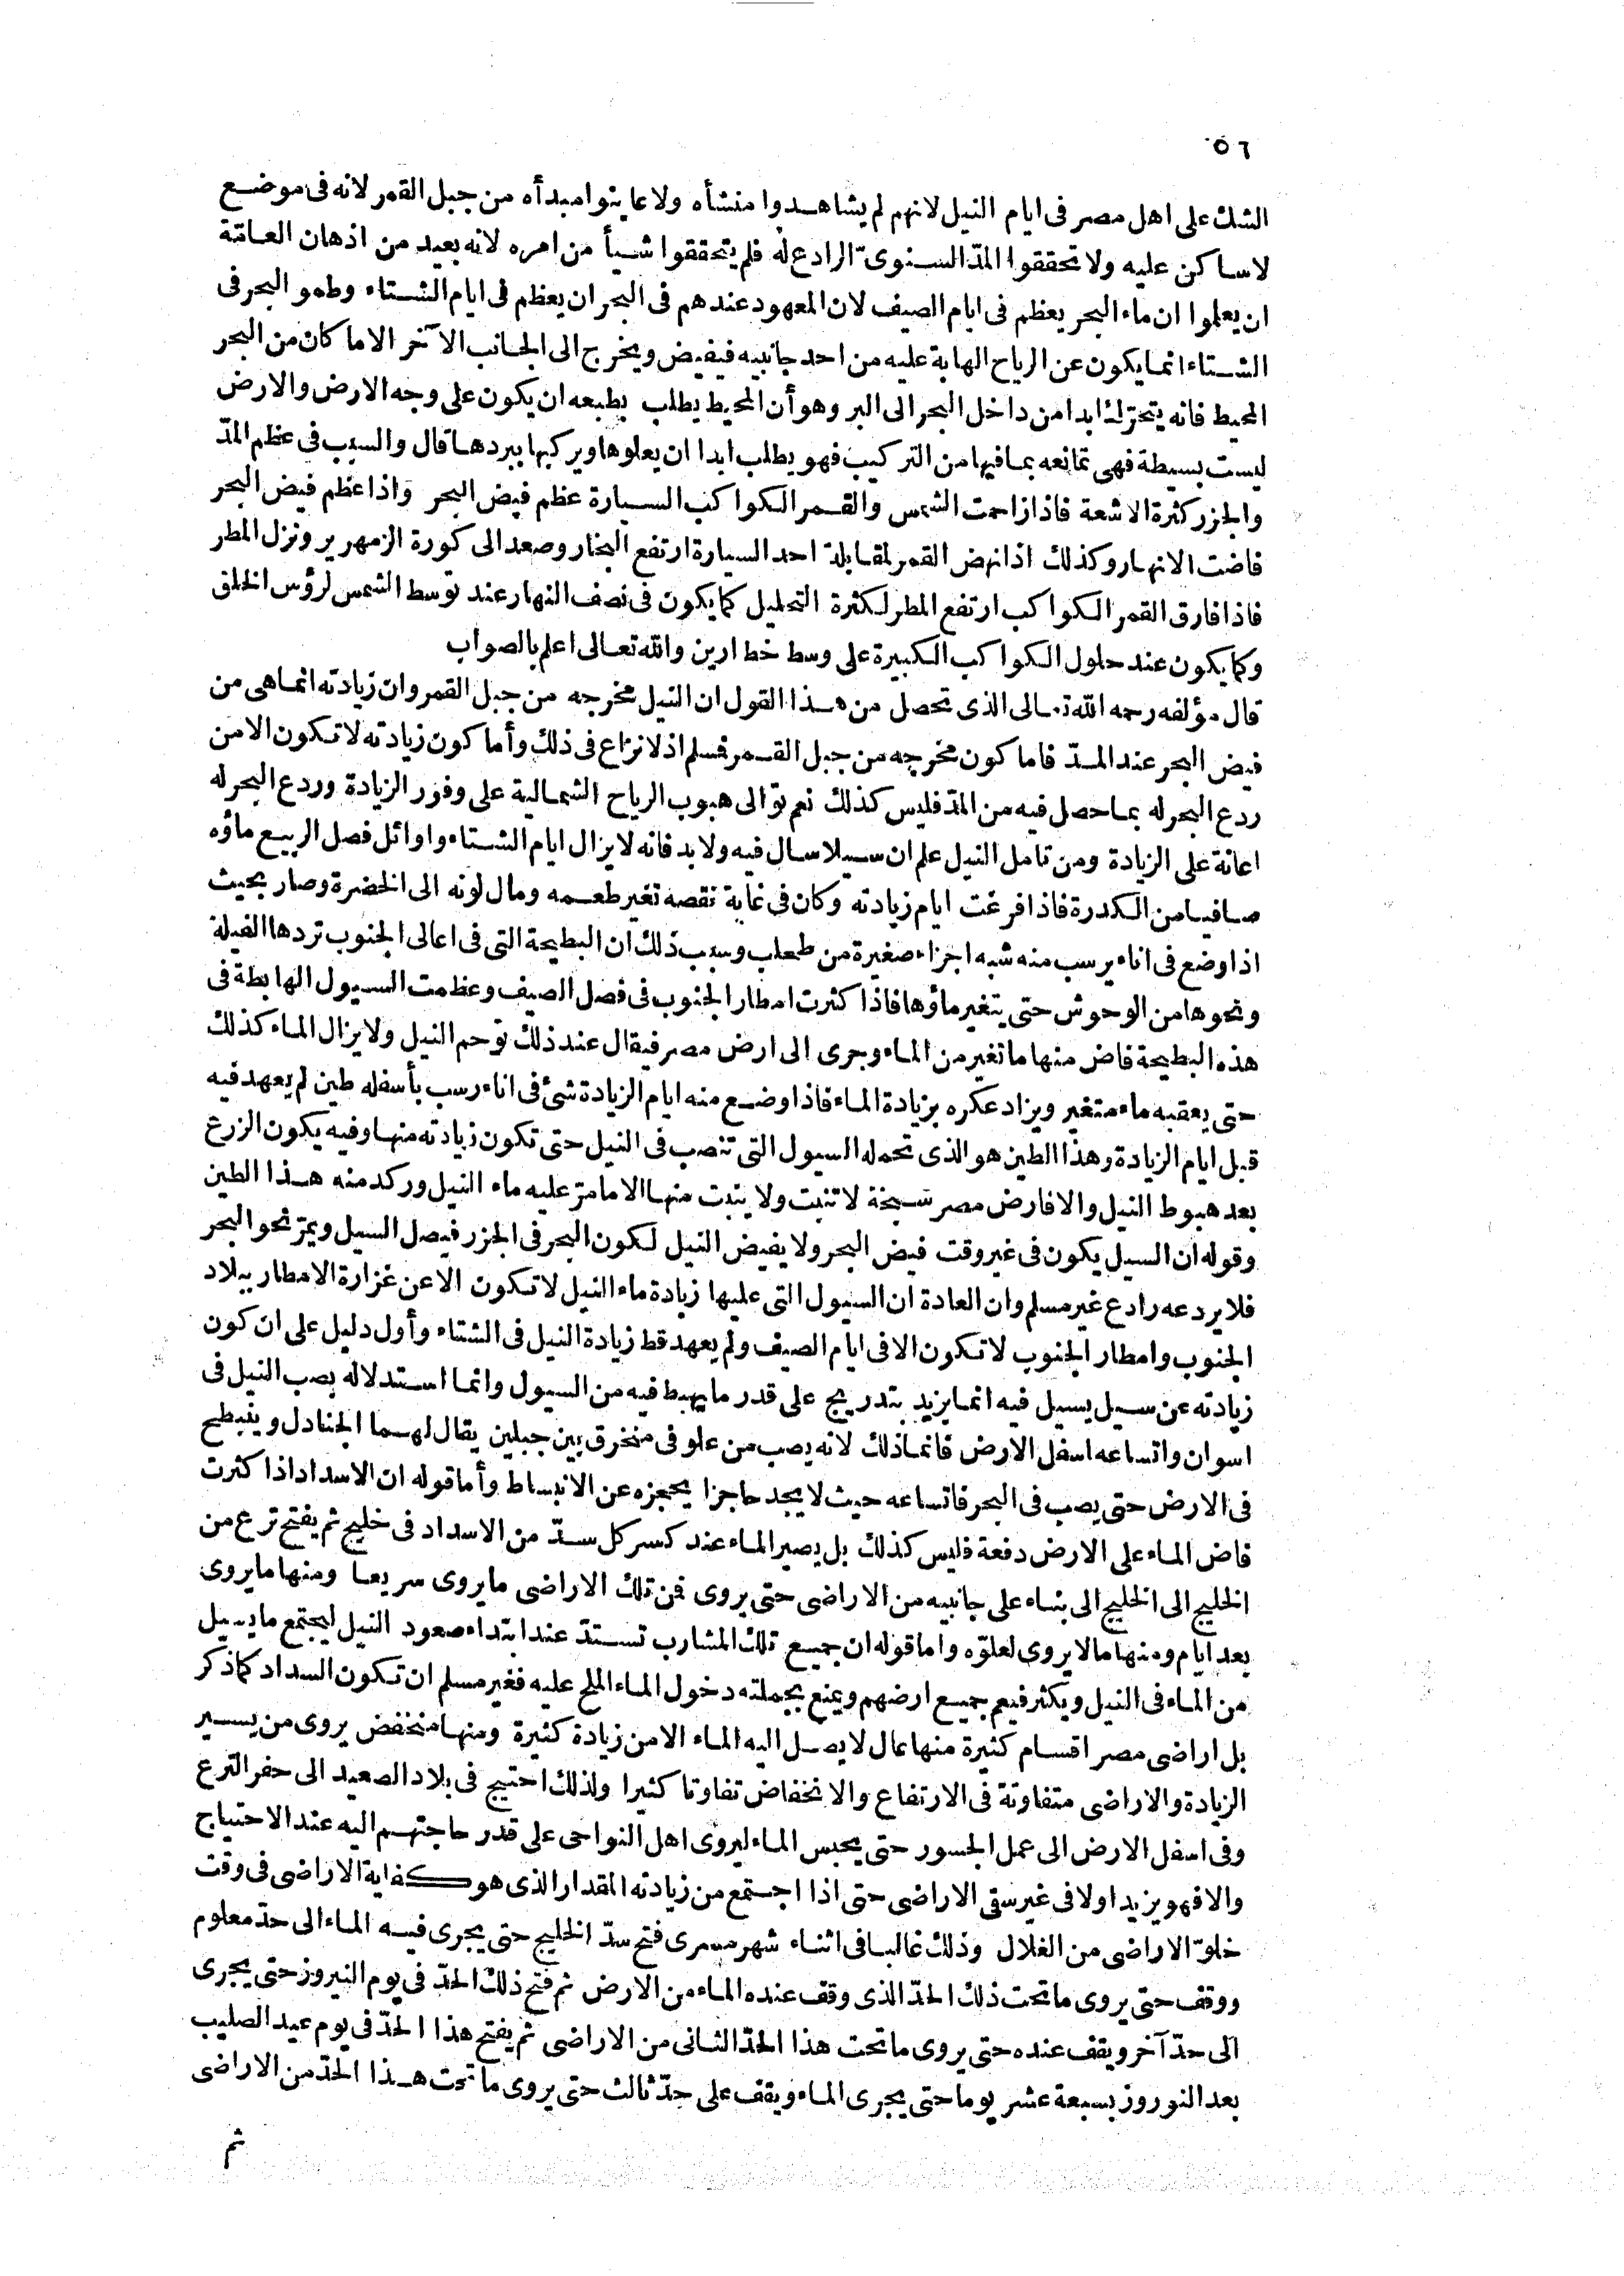 ٥٦
الشك على اهل مصر فى ايام النيل لانهم لم يشاهدوا منشأه ولا عاينوا مبدأه من جبل القمر لانه فى موضع
لاساكن عليه ولا تحققوا المدّ السنوىّ الرادع له فلم يتحققوا شيأ من امره لانه بعيد من اذهان العامّة
ان يعلموا ان ماء البحر يعظم فى ايام الصيف لان المعهود عندهم فى البحر ان يعظم فى ايام الشتاء وطمو البحر فى
الشتاء انما يكون عن الرياح الهابة عليه من احد جانبيه فيفيض ويخرج الى الجانب الآخر الا ما كان من البحر
المحيط فانه يتحرّك ابدا من داخل البحر الى البر وهو أن المحيط يطلب بطبعه ان يكون على وجه الارض والارض
ليست بسيطة فهى تمانعه بما فيها من التركيب فهو يطلب ابدا ان يعلوها ويركبها ببردها قال والسبب فى عظم المدّ
والجزر كثرة الاشعة فاذا زاحمت الشمس والقمر الكواكب السيارة عظم فيض البحر واذا عظم فيض البحر
فاضت الانهار وكذلك اذا نهض القمر لمقابلة احد السيارة ارتفع البخار وصعد الى كورة الزمهرير ونزل المطر
فاذا فارق القمر الكواكب ارتفع المطر لكثرة التحليل كما يكون فى نصف النهار عند توسط الشمس لرؤس الخلق
وكما يكون عند حلول الكواكب الكبيرة على وسط خط ارين والله تعالى اعلم بالصواب
قال مؤلفه رحمه الله تعالى الذى تحصل من هذا القول ان النيل مخرجه من جبل القمر وان زيادته انما هى من
فيض البحر عند المدّ فاما كون مخرجه من جبل القمر فسلم اذ لا نزاع فى ذلك وأما كون زيادته لا تكون الا من
ردع البحر له بما حصل فيه من المدّ فليس كذلك نعم توالى هبوب الرياح الشمالية على وفور الزيادة وردع البحر له
اعانة على الزيادة ومن تامل النيل علم ان سيلا سال فيه ولا بد فانه لا يزال ايام الشتاء واوائل فصل الربيع ماؤه
صافيا من الكدرة فاذا فرغت ايام زيادته وكان فى غاية نقصه تغير طعمه ومال لونه الى الخضرة وصار بحيث
اذا وضع فى اناء يرسب منه شبه اجزاء صغيرة من طحلب وسبب ذلك ان البطيحة التى فى اعالى الجنوب تردها الفيلة
ونحوها من الوحوش حتى يتغير ماؤها فاذا كثرت امطار الجنوب فى فصل الصيف وعظمت السيول الهابطة فى
هذه البطيحة فاض منها ما تغير من الماء وجرى الى ارض مصر فيقال عند ذلك توحم النيل ولا يزال الماء كذلك
حتى يعقبه ماء متغير ويزاد عكره بزيادة الماء فاذا وضع منه ايام الزيادة شئ فى اناء رسب بأسفله طين لم يعهد فيه
قبل ايام الزيادة وهذا الطين هو الذى تحمله السيول التى تنصب فى النيل حتى تكون زيادته منها وفيه يكون الزرع
بعد هبوط النيل والا فارض مصر سبخة لا تنبت ولا ينبت منها الا ما مرّ عليه ماء النيل وركد منه هذا الطين
وقوله ان السيل يكون فى غير وقت فيض البحر ولا يفيض النيل لكون البحر فى الجزر فيصل السيل ويمرّ نحو البحر
فلا يردعه رادع غير مسلم وان العادة ان السيول التى عليها زيادة ماء النيل لا تكون الا عن غزارة الامطار ببلاد
الجنوب وامطار الجنوب لا تكون الا فى ايام الصيف ولم يعهد قط زيادة النيل فى الشتاء وأول دليل على ان كون
زيادته عن سيل يسيل فيه انما يزيد بتدريج على قدر ما يهبط فيه من السيول وانما استدلاله بصب النيل فى
اسوان واتساعه اسفل الارض فانما ذلك لانه يصب من علو فى منخرق بين جبلين يقال لهما الجنادل وينبطح
فى الارض حتى يصب فى البحر فاتساعه حيث لا يجد حاجزا يحجزه عن الانبساط وأما قوله ان الاسداد اذا كثرت
فاض الماء على الارض دفعة فليس كذلك بل يصير الماء عند كسر كل سدّ من الاسداد فى خليج ثم يفتح ترع من
الخليج الى الخليج الى بناء على جانبيه من الاراضى حتى يروى فمن تلك الاراضى ما يروى سريعا ومنها ما يروى
بعد ايام ومنها ما لا يروى لعلوّه واما قوله ان جميع تلك المشارب تستد عند ابتداء صعود النيل ليجتمع ما يسيل
من الماء فى النيل ويكثر فيعم جميع ارضهم ويمنع بجملته دخول الماء الملح عليه فغير مسلم ان تكون السداد كما ذكر
بل اراضى مصر اقسام كثيرة منها عال لا يصل اليه الماء الا من زيادة كثيرة ومنها منخفض يروى من يسير
الزيادة والاراضى متفاوتة فى الارتفاع والانخفاض تفاوتا كثيرا ولذلك احتيج فى بلاد الصعيد الى حفر الترع
وفى اسفل الارض الى عمل الجسور حتى يحبس الماء ليروى اهل النواحى على قدر حاجتهم اليه عند الاحتياج
والا فهو يزيد اولا فى غير سقى الاراضى حتى اذا اجتمع من زيادته المقدار الذى هو كفاية الاراضى فى وقت
خلوّ الاراضى من الغلال وذلك غالبا فى اثناء شهر مسرى فتح سدّ الخليج حتى يجرى فيه الماء الى حدّ معلوم
ووقف حتى يروى ما تحت ذلك الحدّ الذى وقف عنده الماء من الارض ثم فتح ذلك الحدّ فى يوم النيروز حتى يجرى
الى حدّ آخر ويقف عنده حتى يروى ما تحت هذا الحدّ الثانى من الاراضى ثم يفتح هذا الحدّ فى يوم عيد الصليب
بعد النوروز بسبعة عشر يوما حتى يجرى الماء ويقف على حدّ ثالث حتى يروى ما تحت هذا الحدّ من الاراضى
ثم